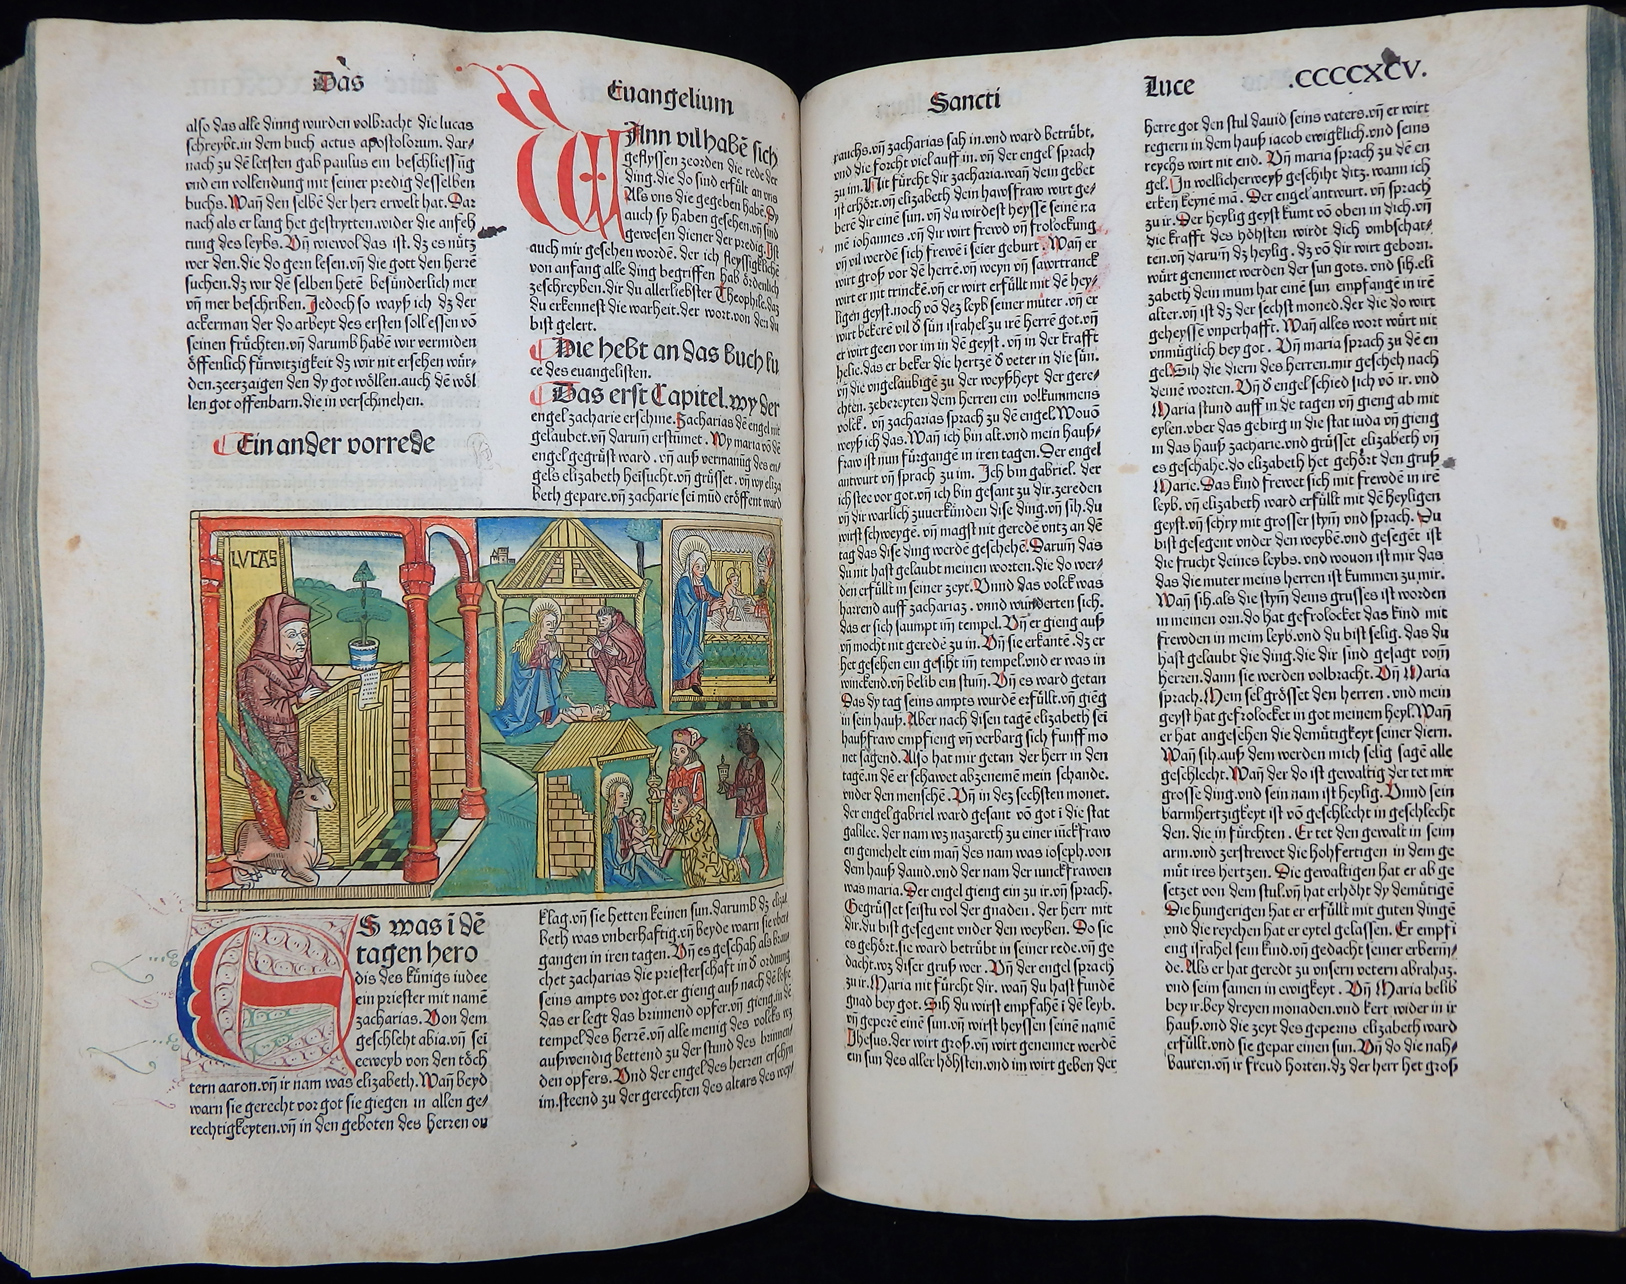 Das
Euangelium
also das alle dinng wurden volbracht die lucas
schreybt.in dem buch actus apostolorum. dar⸗
nach zu dē letsten gab paulus ein beschliessūg
vnd ein vollendung mit seiner predig desselben
buchs. Wañ den selbē der herr erwelt hat. Dar
nach als er lang het gestrytten.wider die anfeh
tung des leybs. Vñ wiewol das ist. dz es nütz
wer den.die do gern lesen.vñ die gott den herrē
suchen.dz wir dē selben hetē besünderlich mer
vñ mer beschriben. Jedoch so wayß ich dz der
ackerman der do arbeyt des ersten soll essen vō
seinen früchten.vñ darumb habē wir vermiden
öffenlich fürwitzigkeit dz wir nit ersehen wür⸗
den.zeerzaigen den dy got wöllen.auch dē wöl
len got offenbarn.die in verschmehen.
Ein ander vorrede
WAnn vil habē sich
geflyssen zeorden die rede der
ding.die do sind erfült an vns
Als ons die gegeben habē.Dy
auch sy haben gesehen.vñ sind
gewesen diener der predig.Ist
auch mir gesehen wordē. der ich fleyssigklichē
von anfang alle ding begriffen hab ordenlich
zeschreyben.dir du allerliebster Theophile.daz
du erkennest die warheit.der wort.von den du
bist gelert.
Hie hebt an das buch lu
ce des euangelisten.
Das erst Capitel.wy der
engel zacharie erschine.Zacharias dē engel nit
gelaubet.vñ darum erstumet. Wy maria vō dē
engel gegrüst ward. vñ auß vermanūg des en⸗
gels elizabeth heisucht.vñ grüsset. vñ wy eliza
beth gepare.vñ zacharie sei mūd eröffent ward
LVCAS
ES was ī dē
tagen hero
dis des künigs iudee
ein priester mit namē
zacharias. Von dem
geschleht abia.vñ sei
eeweyb von den töch
tern aaron.vñ ir nam was elizabeth.Wañ beyd
warn sie gerecht vor got sie giegen in allen ge⸗
rechtigkeyten.vñ in den geboten des herren on
klag.vñ sie hetten keinen sun.darumb dz elizа
beth was vnberhaftig.vñ beyde warn sie
gangen in iren tagen. Vñ es geschah als
chet zacharias die priesterschaft in δ ordnung
seins ampts vor got.er gieng auß nach dē
das er legt das brinnend opfer.vñ gieng.in dē
tempel des herrē.vñ alle menig des volcks wz
außwendig bettend zu der stund des brinnen⸗
den opfers. Vnd der engel des herren erschyn
im.steend zu der gerechten des altars des wey⸗
Sancti
Luce
.CCCCXCV.
rauchs.vñ zacharias sah in.vnd ward betrübt.
vnd die forcht viel auff in. vñ der engel sprach
zu im. Nit fürcht dir zacharia.wañ dein gebet
ist erhört.vñ elizabeth dein hawsfraw wirt ge⸗
berē dir einē sun. vñ du wirdest heyssē seinē na
mē iohannes .vñ dir wirt frewd vñ frolockung
vñ vil werdē sich frewē ī seier geburt. Wañ er
wirt groß vor dē herrē.vñ weyn vñ sawrtranck
wirt er nit trinckē.vñ er wirt erfüllt mit dē hey⸗
ligen geyst.noch vō dez leyb seiner müter .vñ er
wirt bekerē vil δ sün israhel zu irē herrē got.vñ
er wirt geen vor im in dē geyst. vñ in der krafft
helie.das er beker die hertzē δ veter in die sün.
vñ die vngelaubigē zu der weyßheyt der gere⸗
chten. zebereyten dem herren ein volkummens
volck. vñ zacharias sprach zu dē engel.Wouō
weyß ich das.Wañ ich bin alt.vnd mein hauß⸗
fraw ist nun fürgangē in iren tagen. Der engel
antwurt vñ sprach zu im. Ich bin gabriel. der
ich stee vor got.vñ ich bin gesant zu dir.zereden
vñ dir warlich zuuerkünden dise ding.vñ sih.du
wirst schweygē. vñ magst nit geredē vntz an dē
tag das dise ding werdē geschehē. Darum das
du nit hast gelaubt meinen worten.die do wer⸗
den erfüllt in seiner zeyt. Vnnd das volck was
harrend auff zachariaz . vnnd wunderten sich.
das er sich saumpt im tempel. Vñ er gieng auß
vñ mocht nit geredē zu in. Vñ sie erkantē. dz er
het gesehen ein gesiht im tempel.vnd er was in
winckend.vñ belib ein stum. Vñ es ward getan
Das dy tag seins ampts wurdē erfüllt.vñ gieg
in sein hauß. Aber nach disen tagē elizabeth sei
haußfraw empfieng vñ verbarg sich funff mo
net sagend. Also hat mir getan der herr in den
tagē.in dē er schawet abzenemē mein schande.
vnder den menschē. Vñ in dez sechsten monet.
der engel gabriel ward gesant vō got ī die stat
galilee. der nam wz nazareth zu einer iūckfraw
en gemehelt ein mañ des nam was ioseph.von
dem hauß dauid.vnd der nam der iunckfrawen
was maria. Der engel gieng ein zu ir.vñ sprach.
Gegrüsset seistu vol der gnaden . der herr mit
dir.du bist gesegent vnder den weyben. Do sie
es gehört.sie ward betrübt in seiner rede.vñ ge
dacht.wz diser gruß wer. Vñ der engel sprach
zu ir. Maria nit fürcht dir. wañ du hast fundē
gnad bey got. Sih du wirst empfahē ī dē leyb.
vñ geperē einē sun.vñ wirst heyssen seinē namē
Jhesus.der wirt groß.vñ wirt genennet werdē
ein sun des aller höhsten.vnd im wirt geben der
herre got den stul dauid seins vaters.vñ er wirt
regiern in dem hauß iacob ewigklich.vnd seins
reychs wirt nit end. Vñ maria sprach zu dē en
gel. In wellicherweyß geschiht ditz. wann ich
erken keynē mā. Der engel antwurt. vñ sprach
zu ir. Der heylig geyst kumt vō oben in dich.vñ
die krafft des höhsten wirdt dich vmbschat⸗
ten.vñ darum dz heylig. dz vō dir wirt geborn.
würt gennnet werden der sun gots. vnd sih.eli
zabeth dein mum hat einē sun empfangē in irē
alter.vñ ist dz der sechst moned.der die do wirt
geheyssē vnperhafft. Wañ alles wort würt nit
vnmüglich bey got . Vñ maria sprach zu dē en
gel. Sih die diern des herren.mir gescheh nach
deinē worten. Vñ δ engel schied sich vō ir. vnd
Maria stund auff in de tagen vñ gieng ab mit
eylen.vber das gebirg in die stat iuda vñ gieng
in das hauß zacharie.vnd grüsset elizabeth vñ
es geschahe.do elizabeth het gehört den gruß
Marie. Das kind frewet sich mit frewdē in irē
leyb. vñ elizabeth ward erfüllt mit dē heyligen
geyst.vñ schry mit grosser stym vnd sprach. Du
bist gesegent vnder den weybē.vnd gesegēt ist
die frucht deines leybs. vnd wouon ist mir das
das die muter meins herren ist kummen zu mir.
Wañ sih.als die stym deins grusses ist worden
in meinen orn.do hat gefrolocket das kind mit
frewden in meim leyb.vnd du bist selig. das du
hast gelaubt die ding.die dir sind gesagt vom
herren.dann sie werden volbracht. Vñ Maria
sprach. Mein sel grösset den herren . vnd mein
geyst hat gefrolocket in got meinem heyl.Wañ
er hat angesehen die demütigkeyt seiner diern.
Wañ sih.auß dem werden mich selig sagē alle
geschlecht.Wañ der do ist gewaltig der tet mir
grosse ding.vnd sein nam ist heylig. Vnnd sein
barmhertzigkeyt ist vō geschlecht in geschlecht
den. die in fürchten . Er tet den gewalt in seim
arm.vnd zerstrewet die hohfertigen in dem ge
müt ires hertzen. Die gewaltigen hat er ab ge
setzet von dem stul.vñ hat erhöht dy demütigē
Die hungerigen hat er erfüllt mit guten dingē
vnd die reychen hat er eytel gelassen. Er empfi
eng israhel sein kind.vñ gedacht seiner erberm⸗
de. Als er hat geredt zu vnsern vetern abrahaz.
vnd seim samen in ewigkeyt . Vñ Maria belib
bey ir.bey dreyen monaden.vnd kert wider in ir
hauß.vnd die zeyt des geperns elizabeth ward
erfüllt.vnd sie gepar einen sun. Vñ do die nah⸗
bauren.vñ ir freud horten.dz der herr het groß